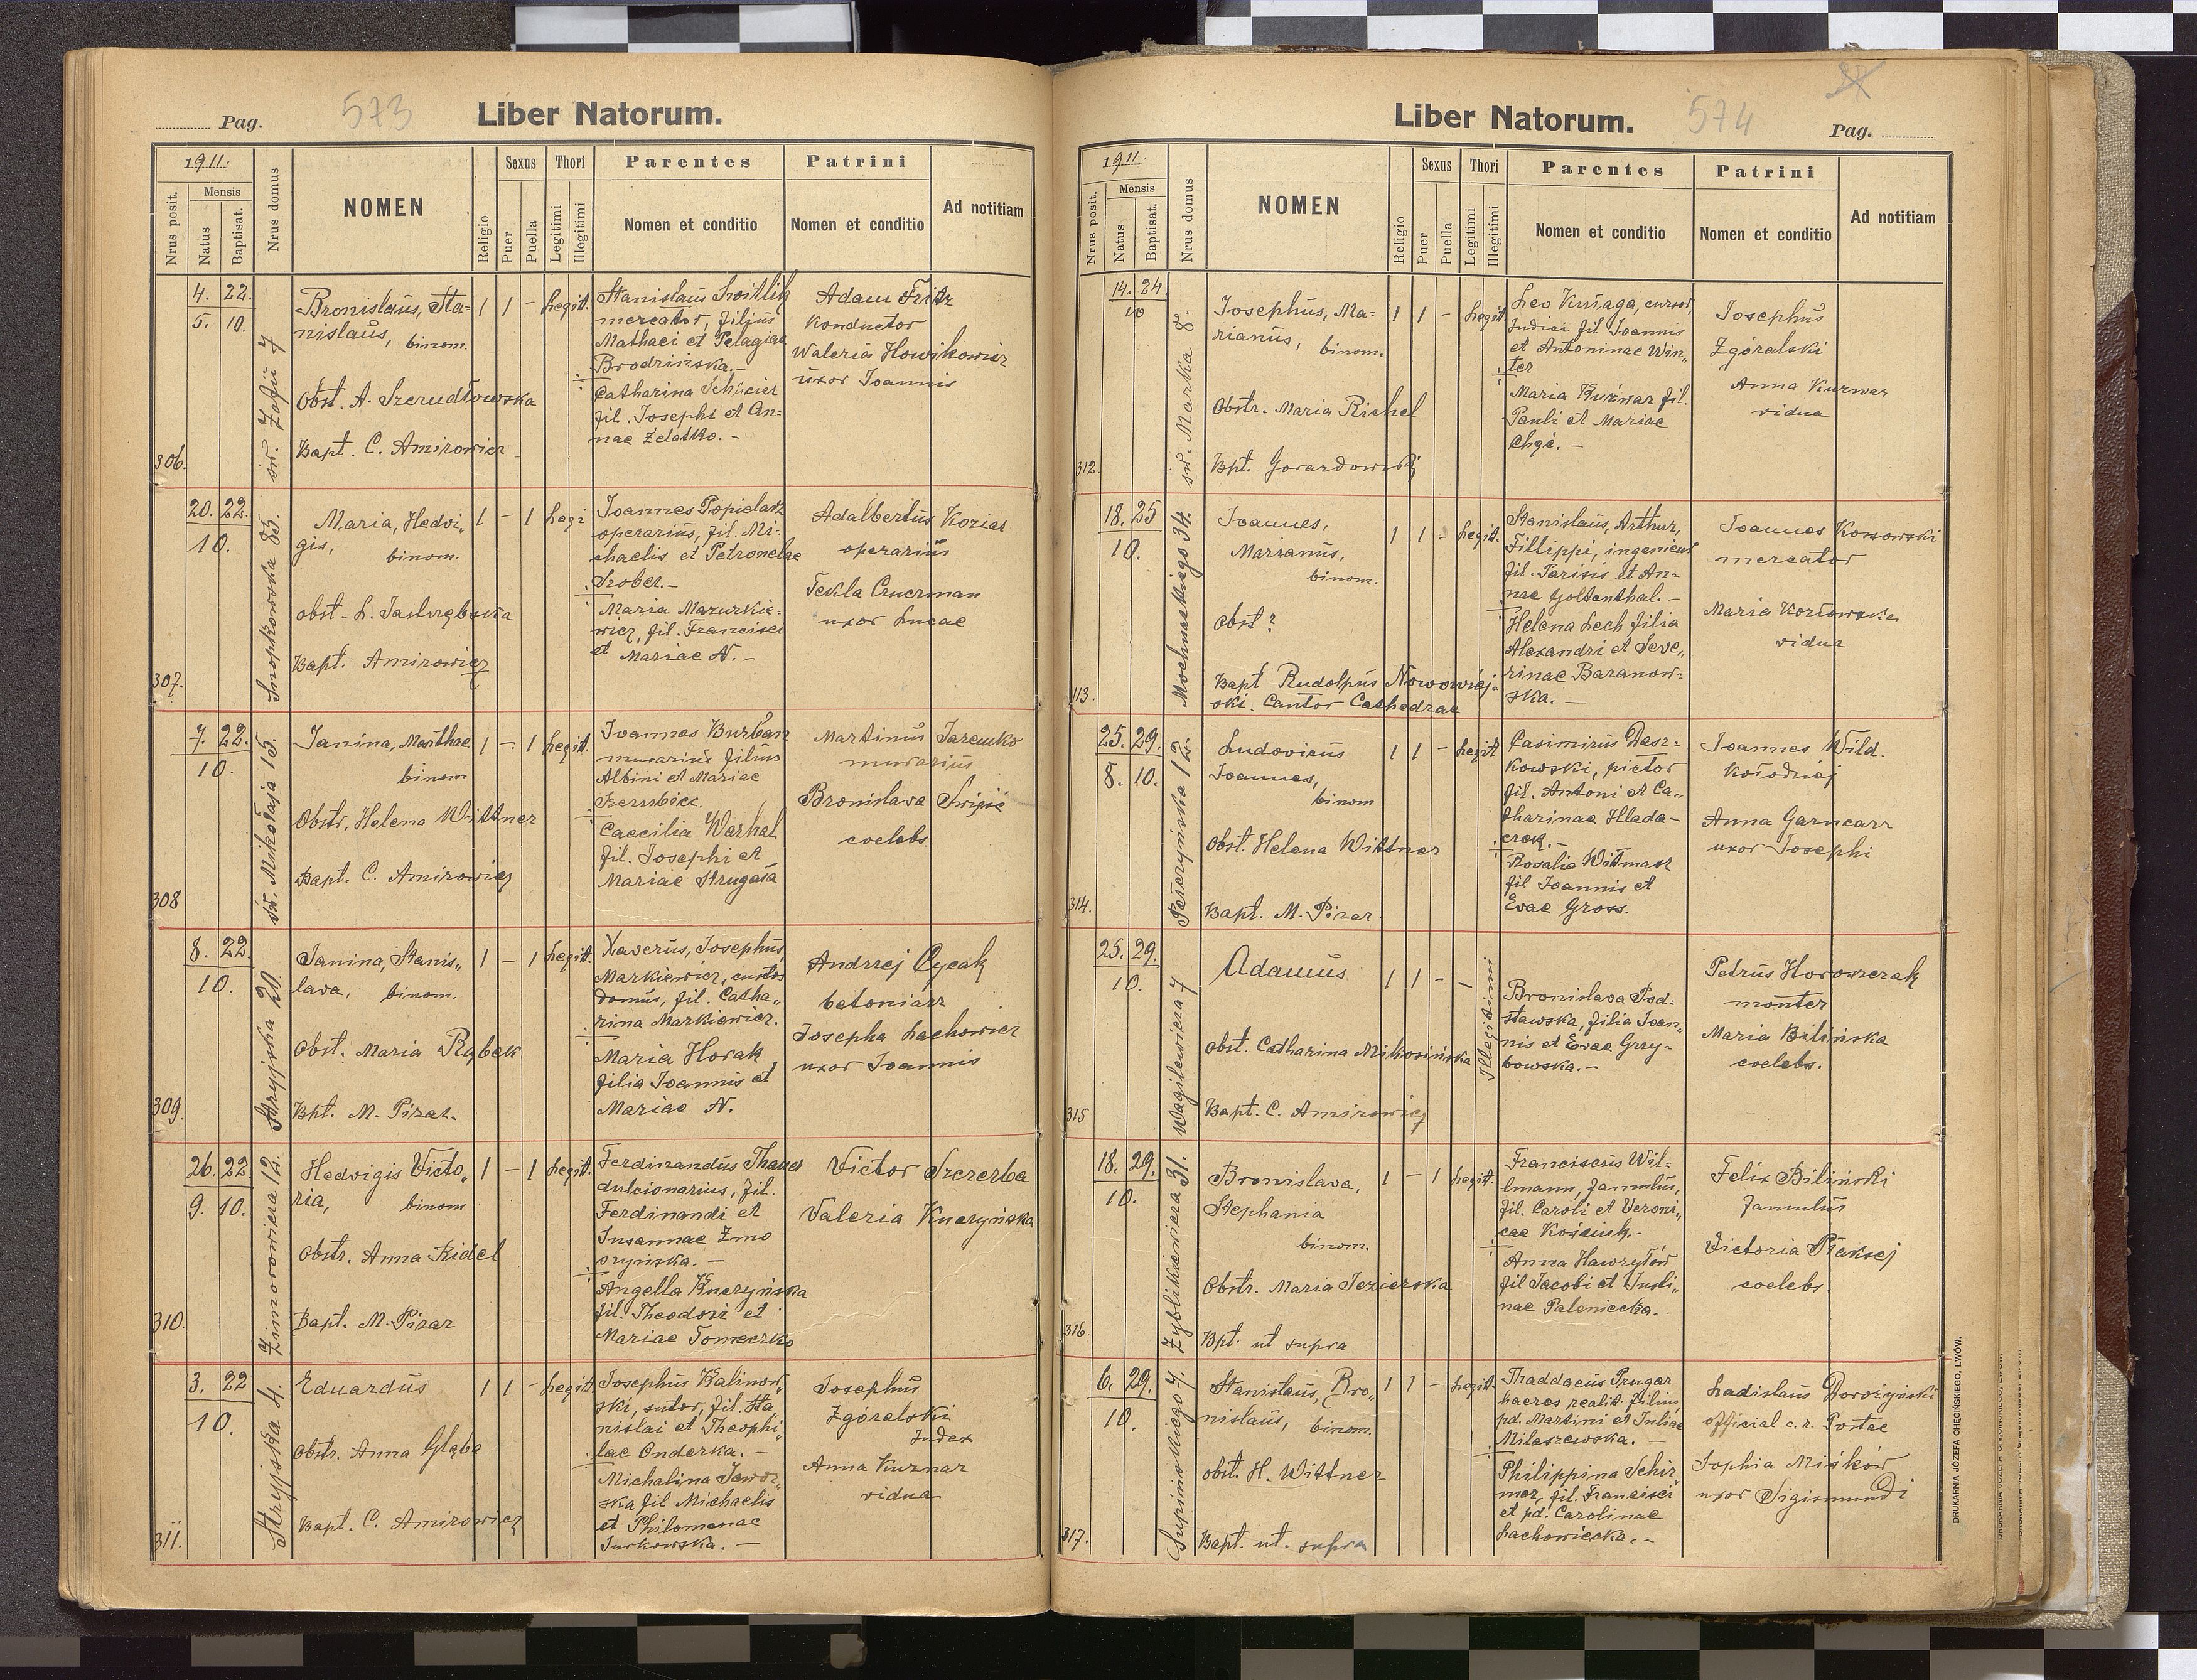 Pag. 573 Liber Natorum.
1911.
Nrus posit.
Mensis
Natus
Baptisat.
Nrus domus
NOMEN
Religio
Sexus
Puer
Puella
Thori
Legitimi
Illegitimi
Parentes
Nomen et conditio
Patrini
Nomen et conditio
Ad notitiam
306.
4. 22.
5. 10.
św. Zofii 7
Bronislaus, Sta=
nislaus, binom.
Obst. A. Szerudłowska
Bapt. C. Amirowicz
1 1 - Legit.
Stanislaus Switlik
mercator, filius
Mathaei et Pelagiae
Brodzińska.-
Catharina Schücier
fil. Josephi et An=
nae Żelatko.-
Adam Fritz
Konductor
Waleria Howikowicz
uxor Joannis
307.
20. 22.
10.
Snopkowska 85.
Maria, Hedvi„
gis, binom.
obst. L. Jastrzębska
Bapt. Amirowicz
1 - 1 Legi
Joannes Popielarz
operarius, fil. Mi-
chaelis et Petronelae
Szober.-
Maria Mazurkie=
wicz, fil. Francisci
et Mariae N.-
Adalbertus Koziar
operarius
Tekla Cruerman
uxor Lucae
308
7. 22.
10.
św. Mikołaja 15.
Janina, Marthae
binom
Obstr. Helena Wittner
Bapt. C. Amirowicz
1 - 1 Legit.
Joannes Burban
murarius filius
Albini et Mariae
Caecilia Warhal
fil. Josephi et
Mariae Strugała
Martinus Jaremko
murarius
Bronislava
coelebs
309.
8. 22.
10.
Stryjska 20
Janina, Stanis„
lava, binom.
Obst. Maria Rąbek
Bpt. M. Pizar.
1 - 1 Legit.
Xaverius, Josephus
Markiewicz, custos
domus, fil. Catha„
rina Markiewicz.
Maria Horak
filia Joannis et
Mariae N.
Andrzej Cycak
betoniarz
Josepha Lachowicz
uxor Joannis
310.
26. 22
9. 10.
Zimorowicza 12.
Hedvigis Victo„
ria, binom
Obstr. Anna Ridel
Bapt. M. Pizar
1 - 1 Legit.
Ferdinandus Thauer
dulcionarius, fil.
Ferdinandi et
Susannae Zmo
ryńska.-
Angella Kuczyńska
fil. Theodori et
Mariae Tomeczko
Victor Szczerba
Valeria Kuczyńska
311.
3. 22
10.
Stryjska 4.
Eduardus
Obstr. Anna Głąba
Bapt. C. Amirowicz
1 1 - Legit.
Josephus Kalinow„
ski, sutor, fil. Sta„
nislai et Theophi„
lae Onderka.-
Michalina Jawor„
ska fil Michaelis
et Philomenae
Jurkowska.-
Josephus
Zgóralski
Index
Anna Kuznar
vidua
Liber Natorum. 574 Pag.
1911.
Nrus posit.
Mensis
Natus
Baptisat.
Nrus domus
NOMEN
Religio
Sexus
Puer
Puella
Thori
Legitimi
Illegitimi
Parentes
Nomen et conditio
Patrini
Nomen et conditio
Ad notitiam
312.
14. 24.
10
św. Marka 8.
Josephus, Ma=
rianus, binom.
Obstr. Maria Rishel
Bpt. Gorardowski
1 1 - Legit.
Leo Kuriaga, cursor
Judici fil Joannis
et Antoninae Win„
ter
Maria Kuźniar fil.
Pauli et Mariae
Chgć.-
Josephus
Zgóralski
Anna Kuzwar
vidua
113.
18. 25
10.
Mochnackiego 34.
Joannes,
Marianus,
binom.
Obst?
Bapt Rudolphus Nowowiej-
ski. Cantor Cathedrae
1 1 - Legit.
Stanislaus, Arthur,
Fillippi, ingenieur
fil. Parisis et An=
nae Goltenthal.-
Helena Lech filia
Alexandri et Seve„
rinae Baranow-
ska.-
Joannes Kossowski
mercator
Maria Kozłowska
vidua
314.
25. 29.
8. 10.
Pełczyńska 12.
Ludovicus
Joannes,
binom
Obst. Helena Wittner
Bapt. M. Pizar
1 1 - Legit
Casimirus Dasz=
kowski, pictor
fil. Antoni et Ca„
tharinae Hlada-
czek.-
Rosalia Witmasz
fil Joannis et
Evae Gross.
Joannes Wild.
kołodziej
Anna Garncarz
uxor Josephi
315
25. 29.
10.
Wagilewicza 7
Adamus
Obst. Catharina Mikosińska
Bapt. C. Amirowicz
1 1 - 1
Illegitimi
Bronislava Pod-
stawska, filia Joan„
nis et Evae Grzy-
bowska.-
Petrus Horoszczak
monter
Maria Bilińska
coelebs.
316.
18. 29.
10.
Zyblikiewicza 31.
Bronislava,
Stephania
binom.
Obstr. Maria Jezierska
Bpt. ut supra
1 - 1 Legit.
Franciscus Wil=
lmann, famulus,
fil. Caroli et Veroni„
cae Kościuk.-
Anna Hawryłów
fil Jacobi et Justi„
nae Paleniecka.
Felix Biliński
famulus
Victoria Pieksej
coelebs
317.
6. 29.
10.
Supińskiego 7.
Stanislaus, Bro„
nislaus, binom.
obst. H. Wittner
Bapt. ut. supra
1 1 - Legit.
Thaddaeus Prugar
haeres realit. filius
pd. Martini et Juliae
Milaszewska.-
Philippina Schir„
mer, fil. Francisci
et pd. Carolinae
Lachowiecka.-
Ladislaus Dorożyński
official c. r. Postae
Sophia Miśków
uxor Sigismundi
DRUKARNIA JÓZEFA CHĘCIŃSKIEGO, LWÓW.